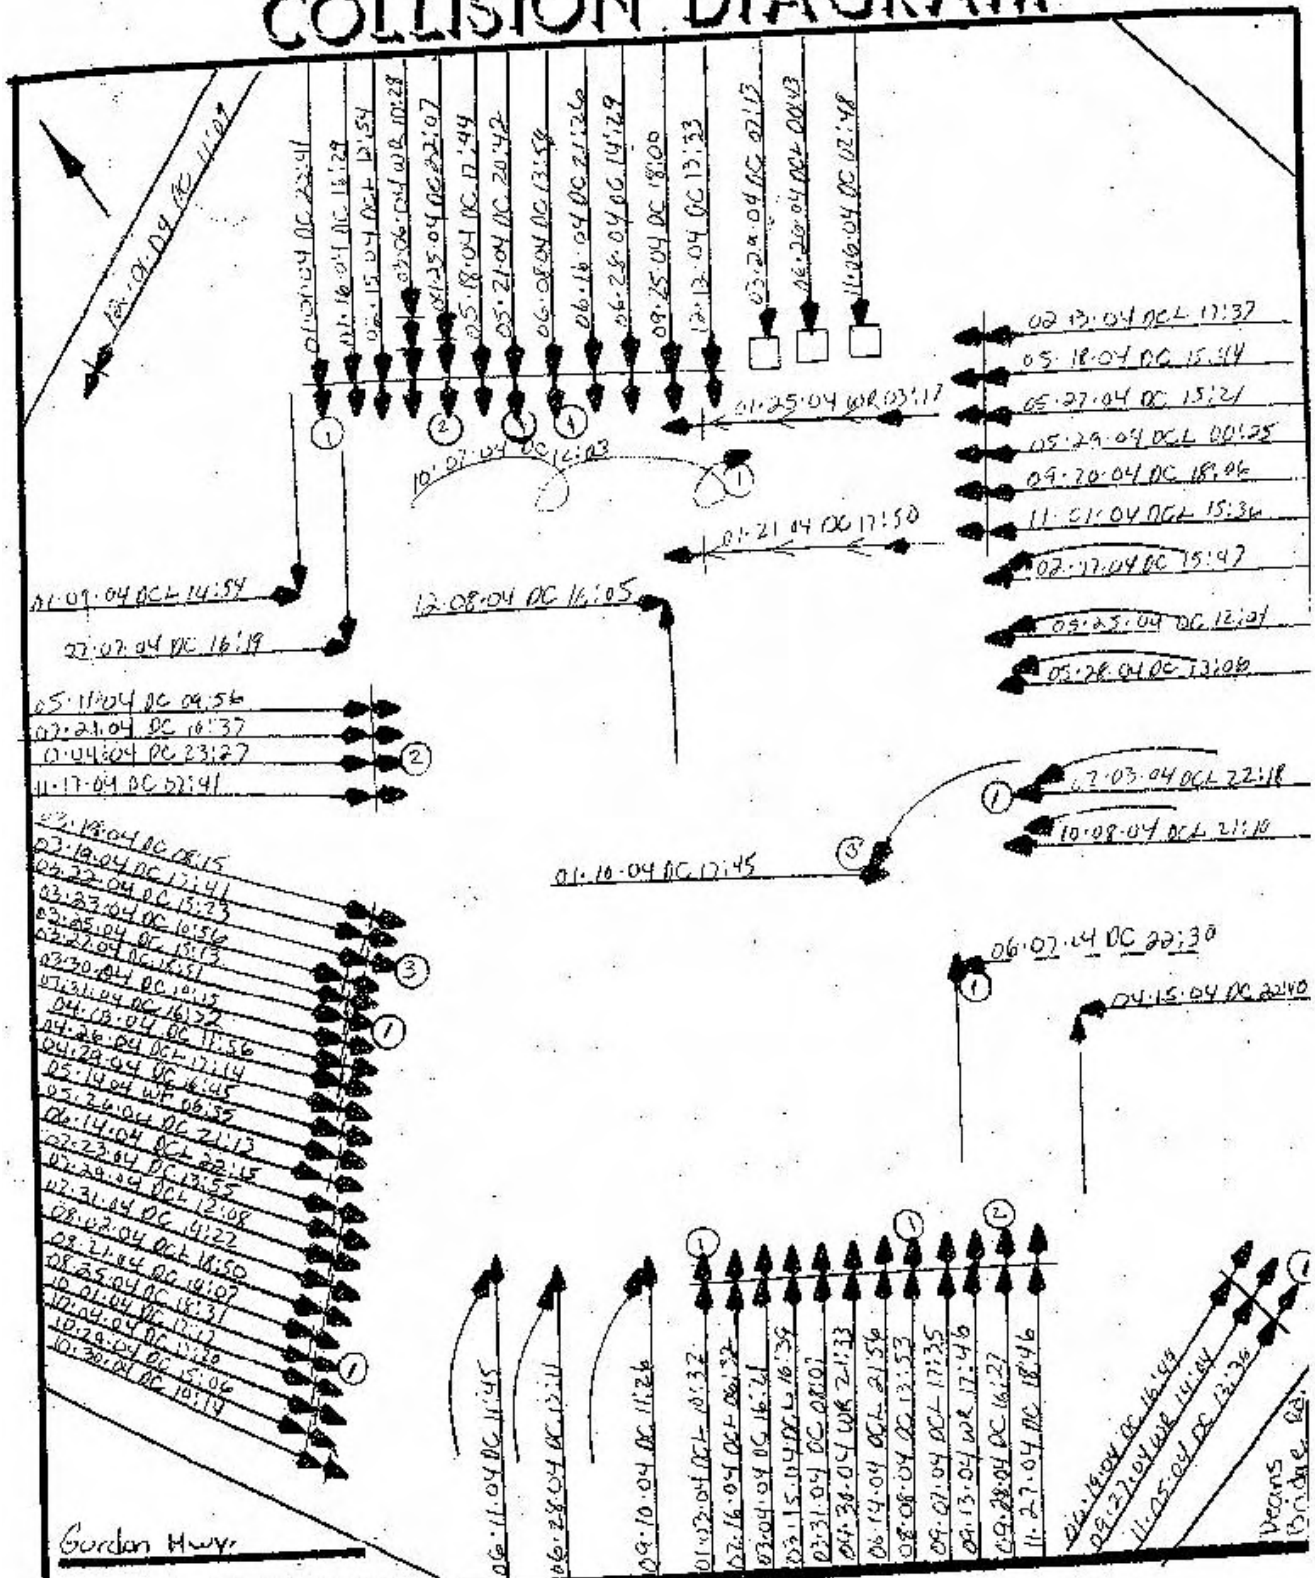 COLLISION DIAGRAM
12·01·04 DC 11:09
01·01·04 DC 22:41
01·16·04 DC 16:29
02·15·04 DCL 12:54
03·06·04 WR 10:28
04·25·04 DC 22:07
05·18·04 DC 17:44
05·21·04 DC 20:42
06·08·04 DC 13:58
06·16·04 DC 21:26
06·28·04 DC 14:29
09·25·04 DC 18:00
12·12·04 DC 13:33
03·29·04 DC 07:13
06·26·04 DCL 00:43
11·06·04 DC 02:48
1
2
1
02·13·04 DCL 17:37
05·18·04 DC 15:44
05·27·04 DC 15:21
05·29·04 DCL 00:25
09·20·04 DC 18:06
11·01·04 DCL 15:36
02·17·04 DC 15:47
05·25·04 DC 12:01
05·28·04 DC 13:06
01·25·04 WR 03:17
10·07·04 DC 12:03
1
01·21·04 DC 17:50
01·09·04 DCL 14:54
12·08·04 DC 16:05
27·07·04 DC 16:19
05·11·04 DC 09:56
07·21·04 DC 10:37
11·04·04 DC 23:27
2
11·17·04 DC 07:41
07·03·04 DCL 22:18
1
10·08·04 DCL 21:10
01·10·04 DC 17:45
5
06·07·04 DC 22:30
1
04·15·04 DC 22:40
03·18·04 DC 08:15
03·19·04 DC 17:41
03·22·04 DC 15:23
03·23·04 DC 10:56
03·25·04 DC 15:13
03·27·04 DC 18:51
03·30·04 DC 10:15
03·31·04 DC 16:32
04·13·04 DC 11:56
04·26·04 DCL 17:14
04·29·04 DC 16:45
05·14·04 WR 06:35
05·26·04 DC 21:13
06·14·04 DCL 22:15
07·23·04 DC 13:55
07·29·04 DCL 12:08
07·31·04 DC 14:22
08·02·04 DCL 18:50
08·21·04 DC 14:07
08·25·04 DC 18:31
10·01·04 DC 17:17
10·04·04 DC 17:20
10·29·04 DC 15:06
10·30·04 DC 10:14
3
1
1
06·11·04 DC 11:45
06·28·04 DC 13:11
09·10·04 DC 11:26
1
1
2
01·03·04 DCL 10:32
02·16·04 DCL 06:32
03·04·04 DC 16:21
03·15·04 DCL 16:39
03·31·04 DC 08:01
04·30·04 WR 21:33
06·14·04 DCL 21:56
08·08·04 DC 13:53
09·07·04 DCL 17:35
09·13·04 WR 17:46
09·28·04 DC 16:27
11·27·04 DC 18:46
06·19·04 DC 16:49
09·27·04 WR 14:04
11·05·04 DC 13:36
1
Gordon Hwy.
Deans
Bridge Rd.